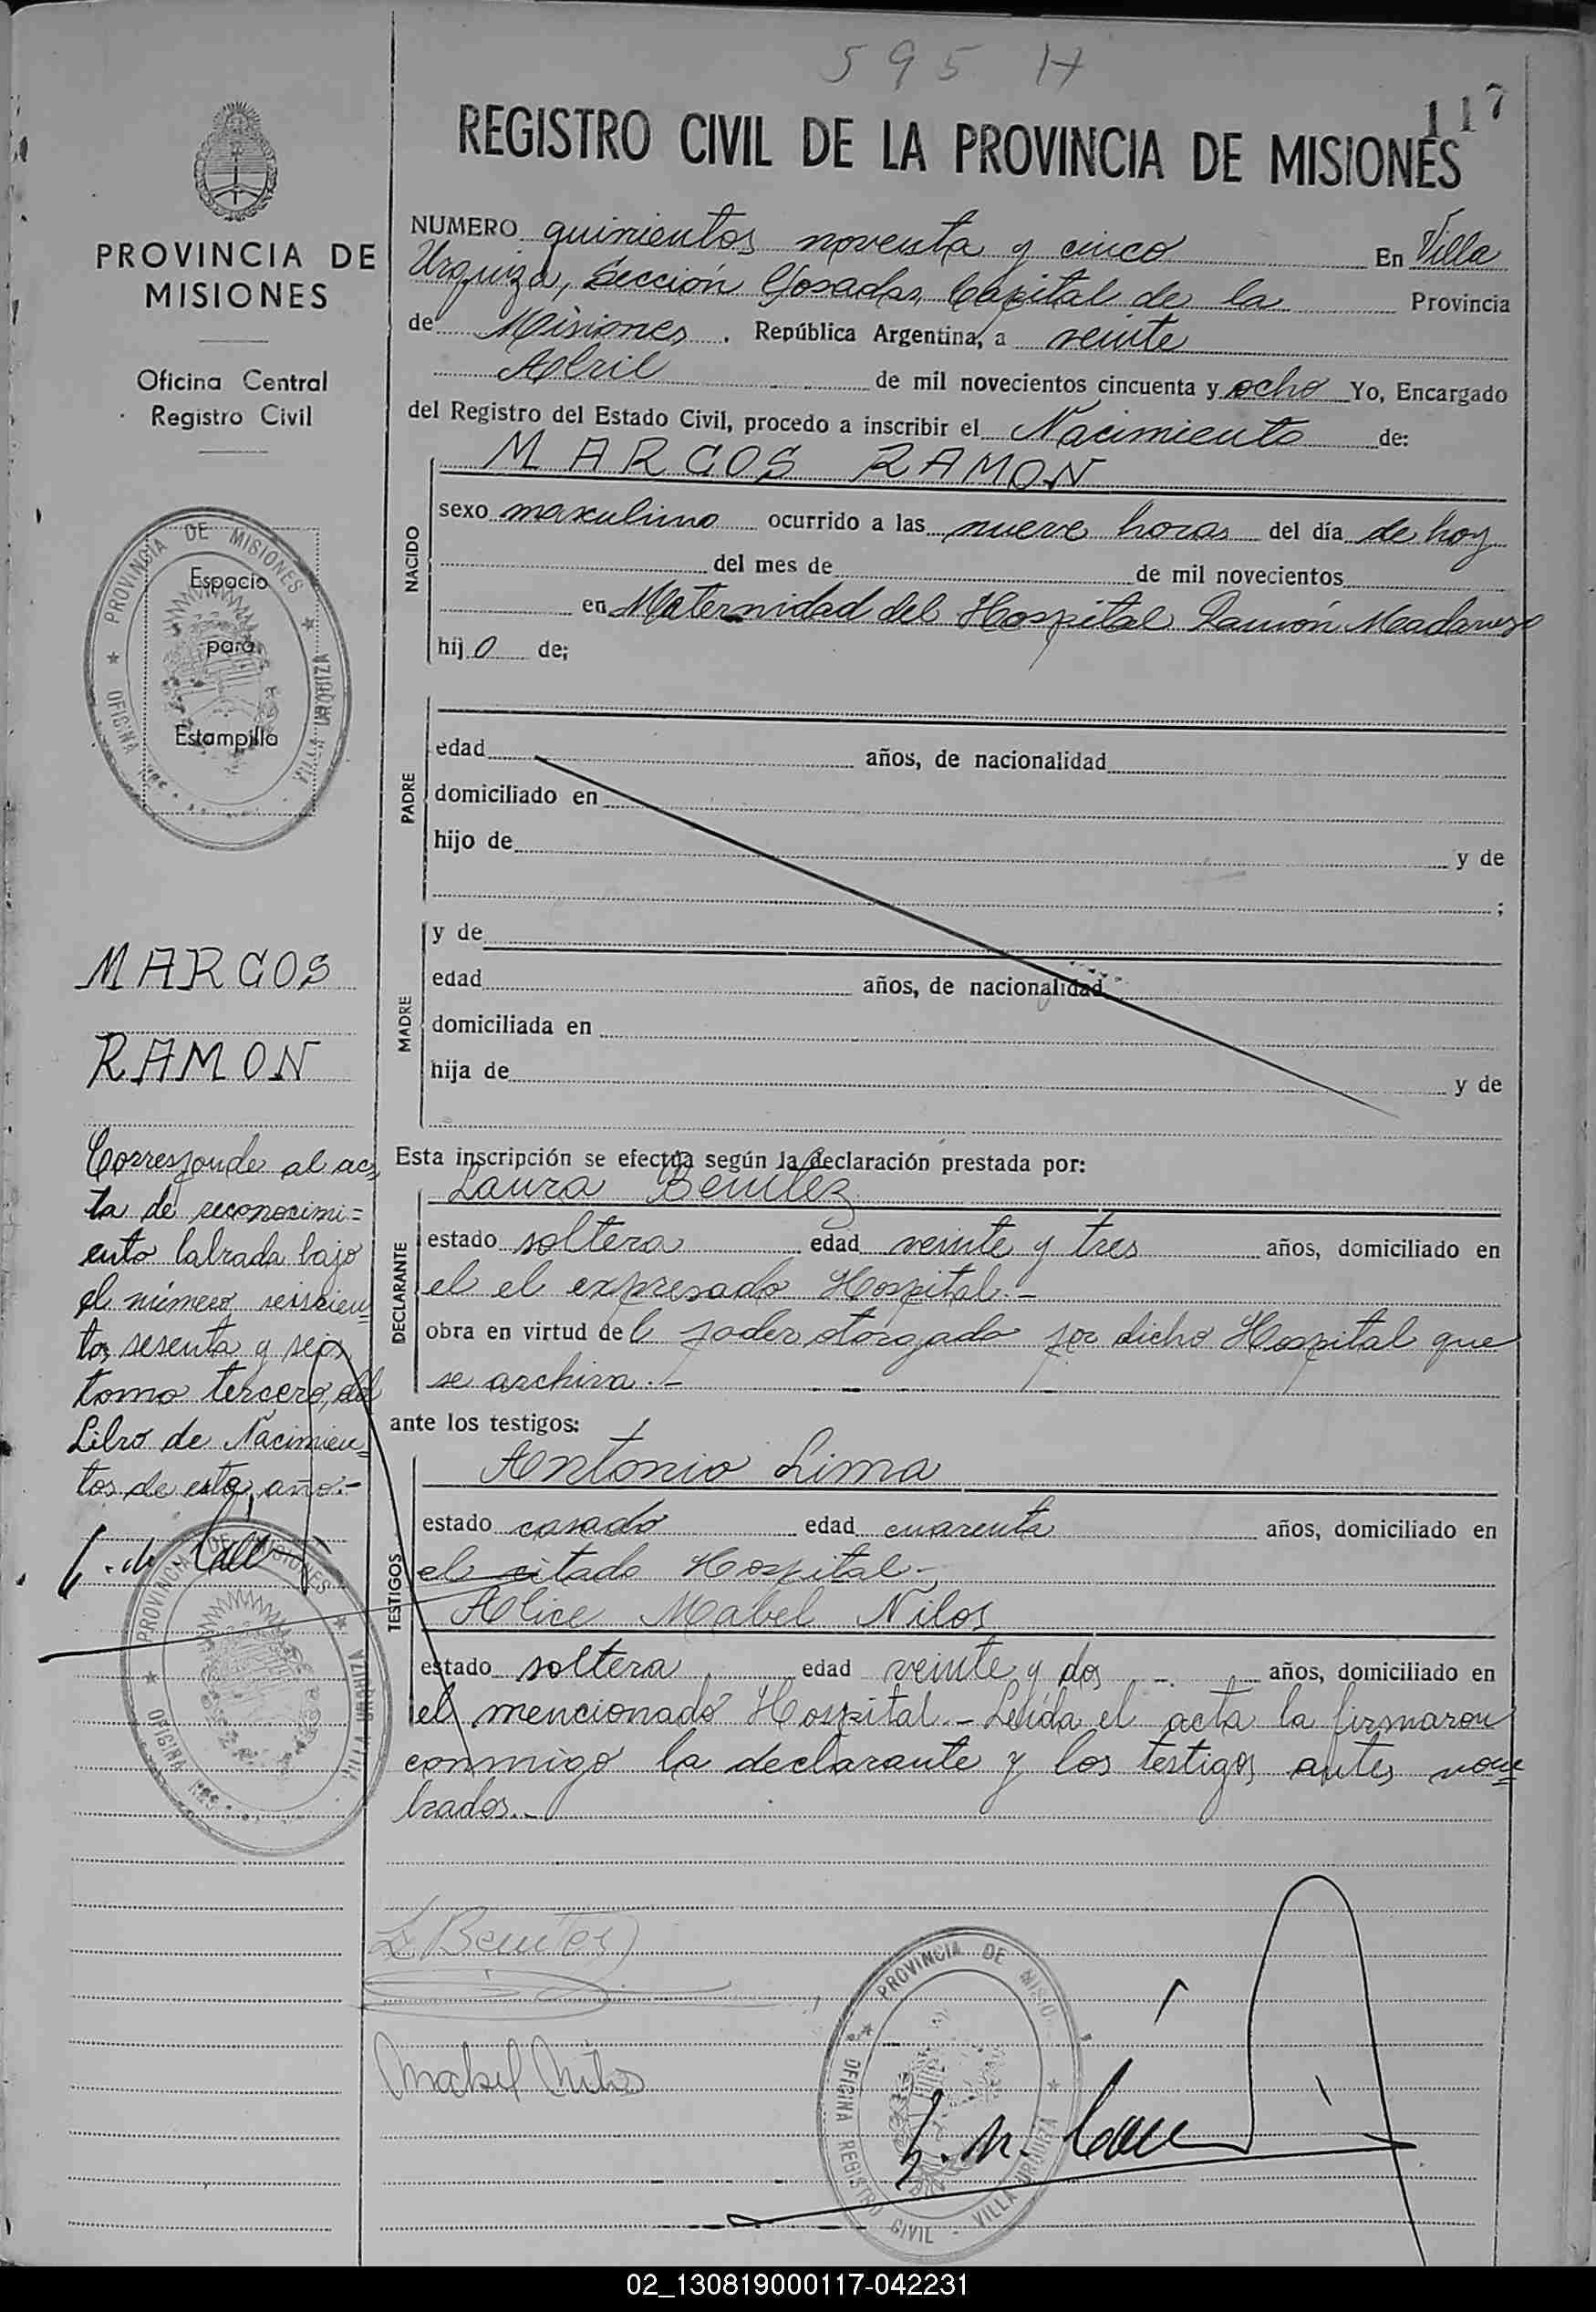 595 H
117
REGISTRO CIVIL DE LA PROVINCIA DE MISIONES
PROVINCIA DE
MISIONES
Oficina Central
Registro Civil
PROVINCIA DE MISIONES
OFICINA
VILLA URQUIZA
Espacio
para
Estampilla
MARCOS
RAMON
Corresponde al ac-
ta de reconocimi=
ento labrada bajo
el número seiscien
tos sesenta y seis
tomo tercero, del
Libro de Nacimien
tos de este año.-
PROVINCIA DE MISIONES
OFICINA
VILLA URQUIZA
NUMERO quinientos noventa y cinco En Villa
Urquiza, Sección Posadas, Capital de la Provincia
de Misiones. República Argentina, a veinte
Abril de mil novecientos cincuenta y ocho Yo, Encargado
del Registro del Estado Civil, procedo a inscribir el Nacimiento de:
MARCOS RAMON
NACIDO
sexo masculino ocurrido a las nueve horas del día de hoy
del mes de de mil novecientos
en Maternidad del Hospital Ramón Madariaga
hijo de;
PADRE
edad años, de nacionalidad
domiciliado en
hijo de y de
;
MADRE
y de
edad años, de nacionalidad
domiciliada en
hija de y de
Esta inscripción se efectúa según la declaración prestada por:
Laura Benitez
DECLARANTE
estado soltera edad veinte y tres años, domiciliado en
el el expresado Hospital.-
obra en virtud del poder otorgado por dicho Hospital que
se archiva.-
ante los testigos:
TESTIGOS
Antonio Lima
estado casado edad cuarenta años, domiciliado en
el citado Hospital-
Alice Mabel Nilos
estado soltera edad veinte y dos años, domiciliado en
el mencionado Hospital.- Leída el acta la firmaron
conmigo la declarante y los testigos antes nom=
brados.-
L. Benitez
Mabel Nilos
PROVINCIA DE MISIO
OFICINA REGISTRO CIVIL - VILLA URQUIZA
02_130819000117-042231